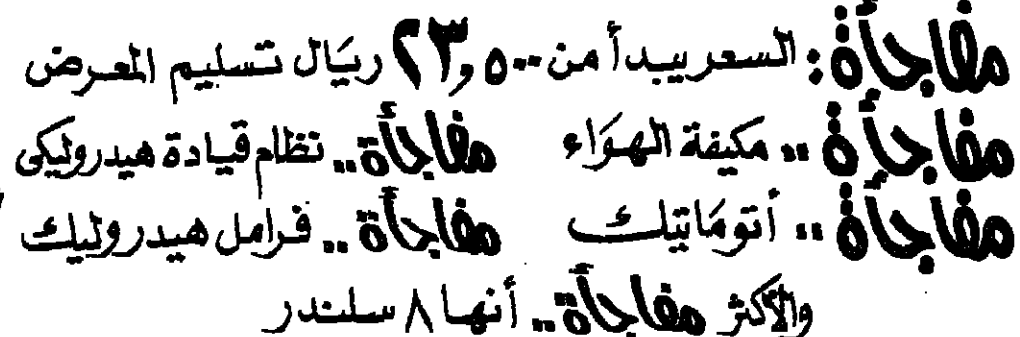 مفاجأة: السعر يبدأ من ٢٣,٥٠٠ ريال تسليم المعرض
مفاجأة .. مكيفة الهواء مفاجأة.. نظام قيادة هيدروليكى
مفاجأة .. أتوماتيك مفاجأة .. فرامل هيدروليك
والأكثر مفاجأة.. أنها ٨ سلندر